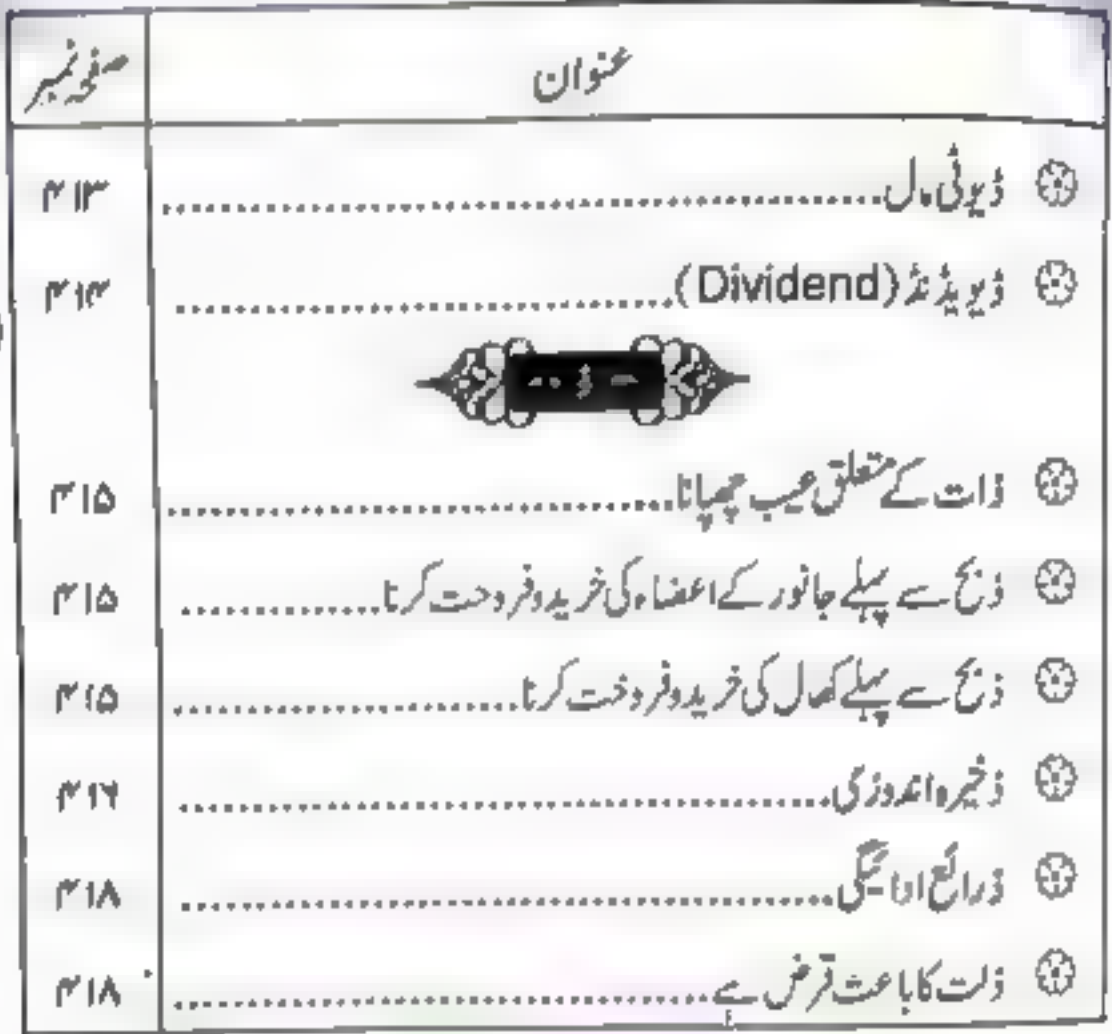 عنوان صفحہ نمبر
ڈیوٹی مال ........ ۴۱۳
ڈیویڈنڈ (Dividend) ........ ۴۱۴
ذ
ذات کے متعلق عیب چھپانا ........ ۴۱۵
ذبح سے پہلے جانور کے اعضاء کی خرید و فروخت کرنا ........ ۴۱۵
ذبح سے پہلے کھال کی خرید و فروخت کرنا ........ ۴۱۵
ذخیرہ اندوزی ........ ۴۱۶
ذرائع ادائیگی ........ ۴۱۸
ذلت کا باعث قرض ہے ........ ۴۱۸